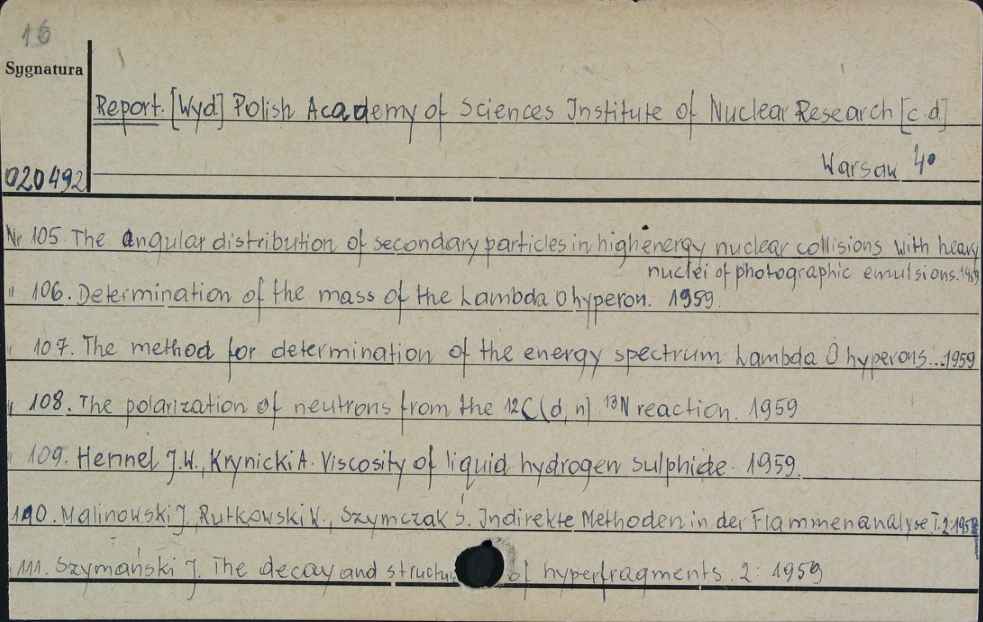 16
Sygnatura
Report. [Wyd] Polish Academy of Sciences Institute of Nuclear Research [c.d]
Warsaw 4°
020492
Nr 105. The angular distribution of secondary particles in high energy nuclear collisions with heavy
nuclei of photographic emulsions. 1959
" 106. Determination of the mass of the Lambda 0 hyperon. 1959.
" 107. The method for determination of the energy spectrum Lambda 0 hyperons... 1959
" 108. The polarization of neutrons from the 12C(d, n) 13N reaction. 1959
" 109. Hennel J.W., Krynicki A. Viscosity of liquid hydrogen sulphide. 1959.
110. Malinowski J, Rutkowski W., Szymczak S. Indirekte Methoden in der Flammenanalyse T.2: 1959
" 111. Szymański J. The decay and structu of hyperfragments. 2: 1959